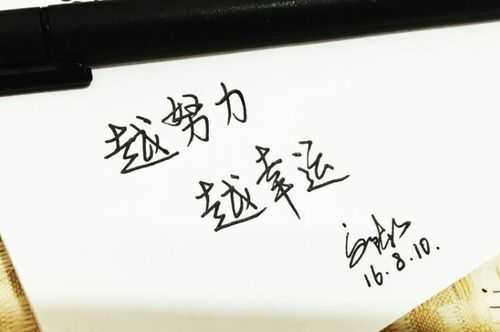 越努力
越幸运
16.8.10.